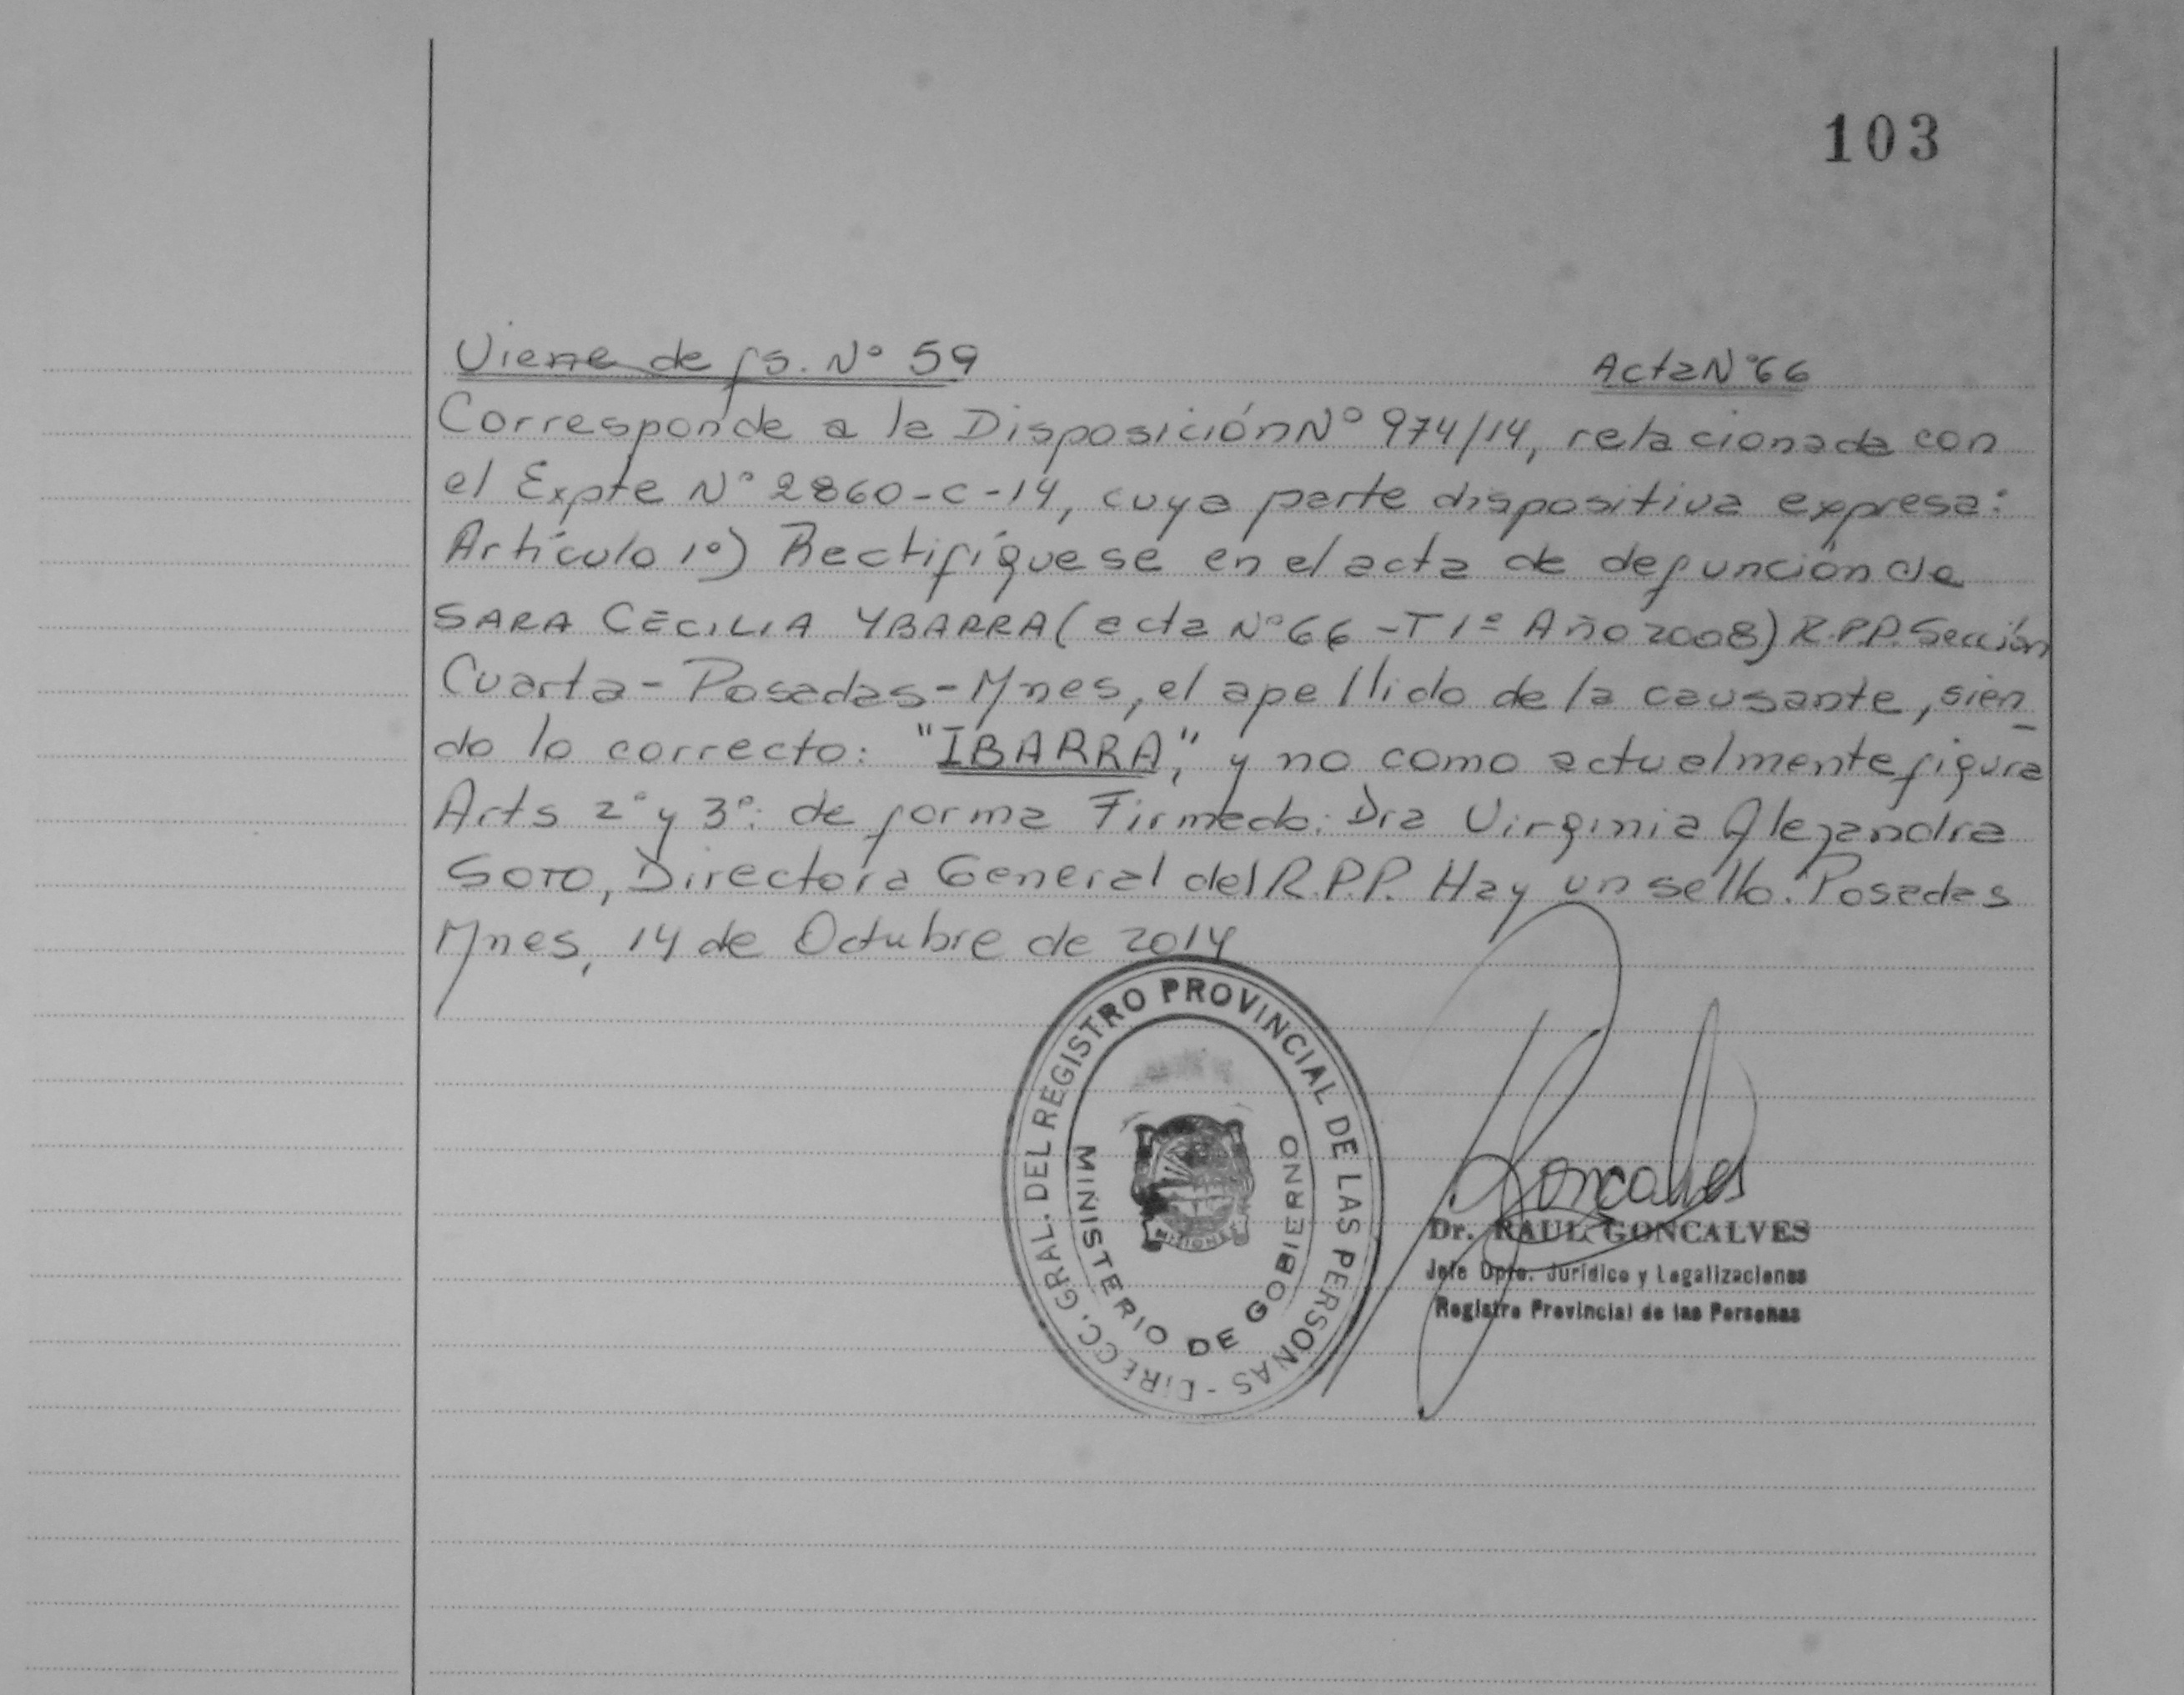 103
Viene de fs. Nº 59 Acta Nº 66
Corresponde a la Disposición Nº 974/14, relacionada con
el Expte Nº 2860-C-14, cuya parte dispositiva expresa:
Artículo 1º) Rectifíquese en el acta de defunción de
SARA CECILIA YBARRA (acta Nº 66 - T 1º Año 2008) R.P.P. Sección
Cuarta - Posadas - Mnes, el apellido de la causante, sien_
do lo correcto: "IBARRA", y no como actualmente figura
Arts 2º y 3º: de forma Firmado: Dra Virginia Alejandra
SOTO, Directora General del R.P.P. Hay un sello. Posadas
Mnes, 14 de Octubre de 2014
DIRECC. GRAL. DEL REGISTRO PROVINCIAL DE LAS PERSONAS -
MINISTERIO DE GOBIERNO
MISIONES
Goncalves
Dr. RAUL GONCALVES
Jefe Dpto. Jurídico y Legalizaciones
Registro Provincial de las Personas